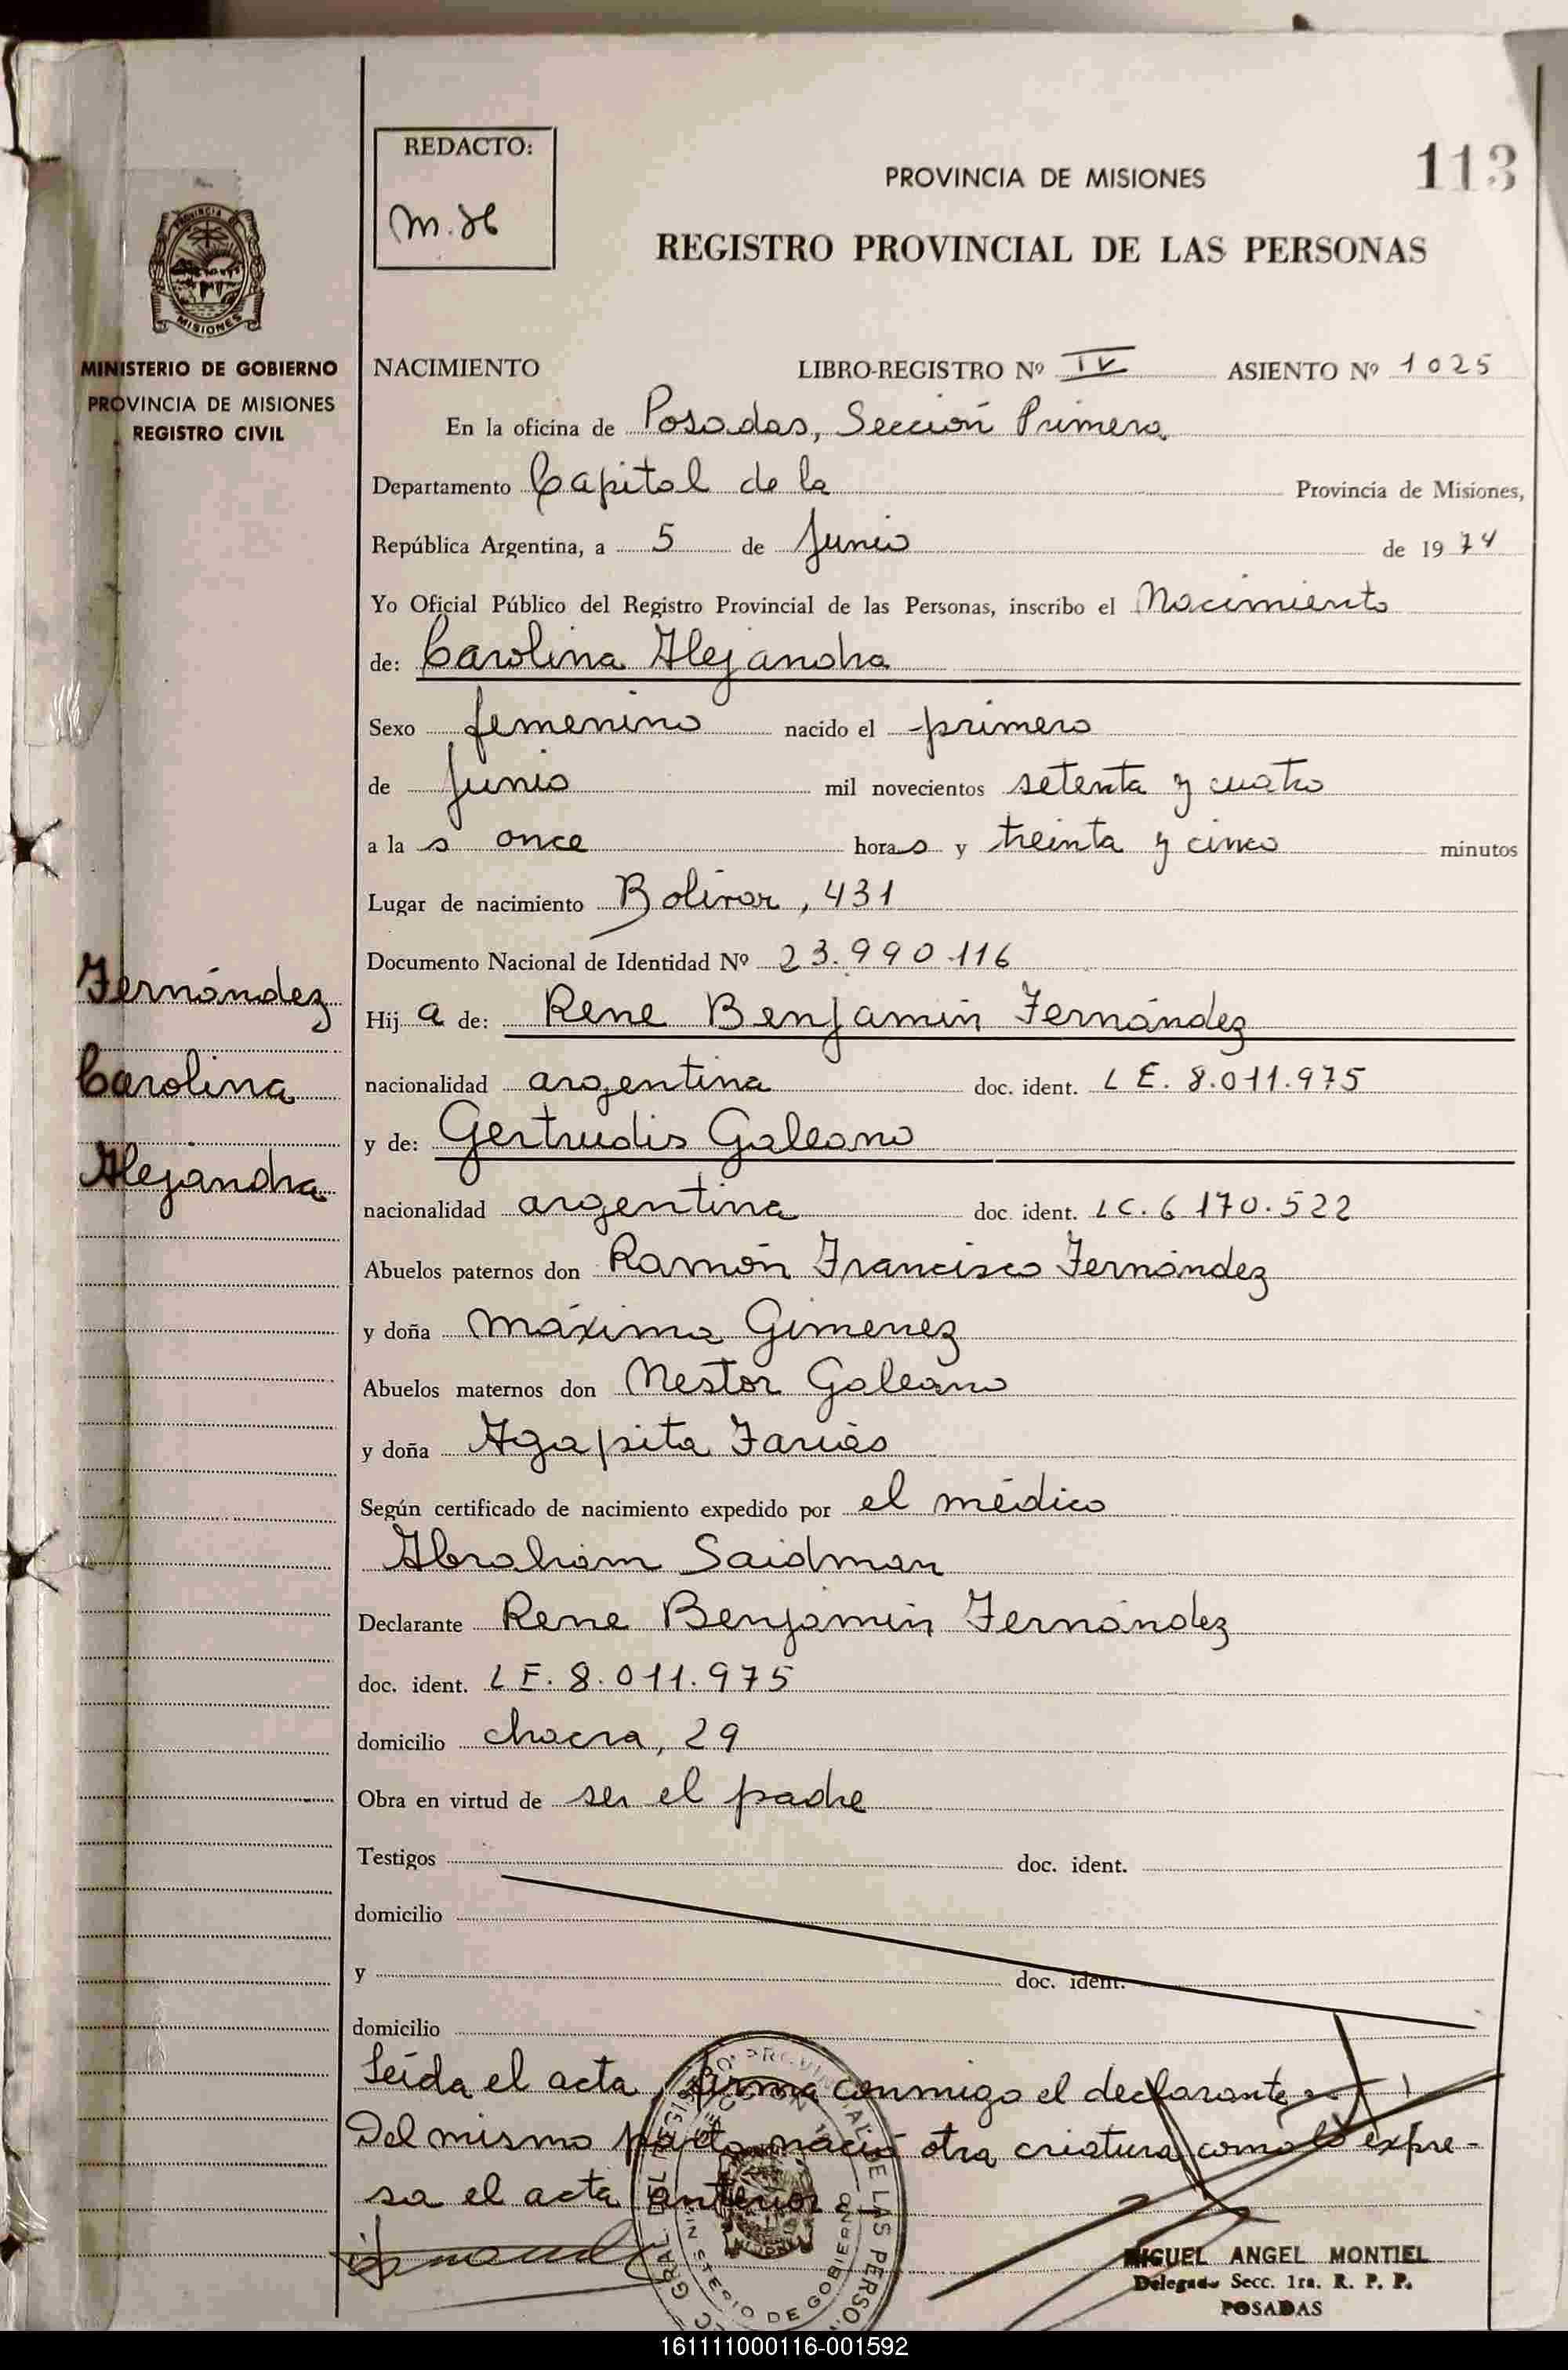 REDACTO:
M.H
PROVINCIA DE MISIONES
113
REGISTRO PROVINCIAL DE LAS PERSONAS
MISIONES
MINISTERIO DE GOBIERNO
PROVINCIA DE MISIONES
REGISTRO CIVIL
NACIMIENTO LIBRO-REGISTRO Nº IV ASIENTO Nº 1025
En la oficina de Posadas, Sección Primera
Departamento Capital de la Provincia de Misiones,
República Argentina, a 5 de Junio de 1974
Yo Oficial Público del Registro Provincial de las Personas, inscribo el Nacimiento
de: Carolina Alejandra
Sexo femenino nacido el primero
de Junio mil novecientos setenta y cuatro
a la s once horas y treinta y cinco minutos
Lugar de nacimiento Bolívar, 431
Documento Nacional de Identidad Nº 23.990.116
Fernández
Carolina
Alejandra
Hij a de: Rene Benjamín Fernández
nacionalidad argentina doc. ident. L E. 8.011.975
y de: Gertrudis Galeano
nacionalidad argentina doc. ident. LC. 6 170.522
Abuelos paternos don Ramón Francisco Fernández
y doña Máxima Gimenez
Abuelos maternos don Nestor Galeano
y doña Agapita Farías
Según certificado de nacimiento expedido por el médico
Abraham Saidman
Declarante Rene Benjamín Fernández
doc. ident. L E. 8.011.975
domicilio chacra, 29
Obra en virtud de ser el padre
Testigos doc. ident.
domicilio
y doc. ident.
domicilio
Leída el acta, firma conmigo el declarante
Del mismo parto nació otra criatura como lo expre-
sa el acta anterior.
MIGUEL ANGEL MONTIEL
Delegado Secc. 1ra. R. P. P.
POSADAS
161111000116-001592